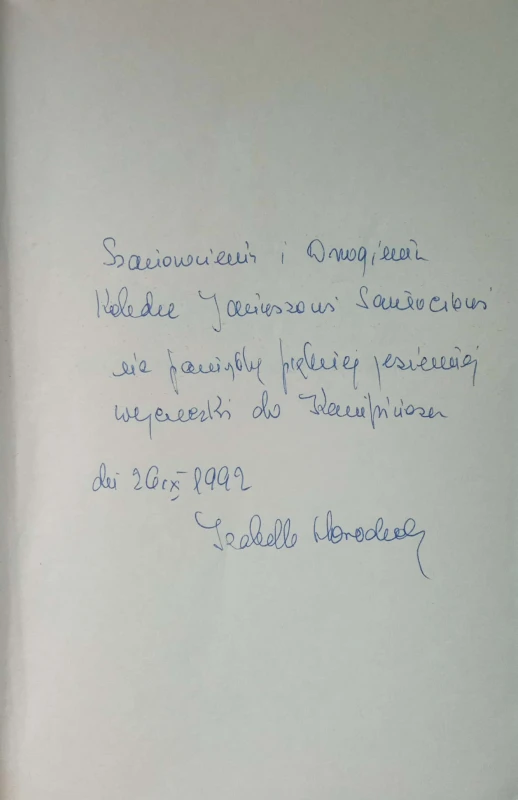 Szanownemu i Drogiemu
Koledze Januszowi Santocikowi
na pamiątkę pięknej jesiennej
wycieczki do Kampinosu
dn 26 IX 1992
Izabella